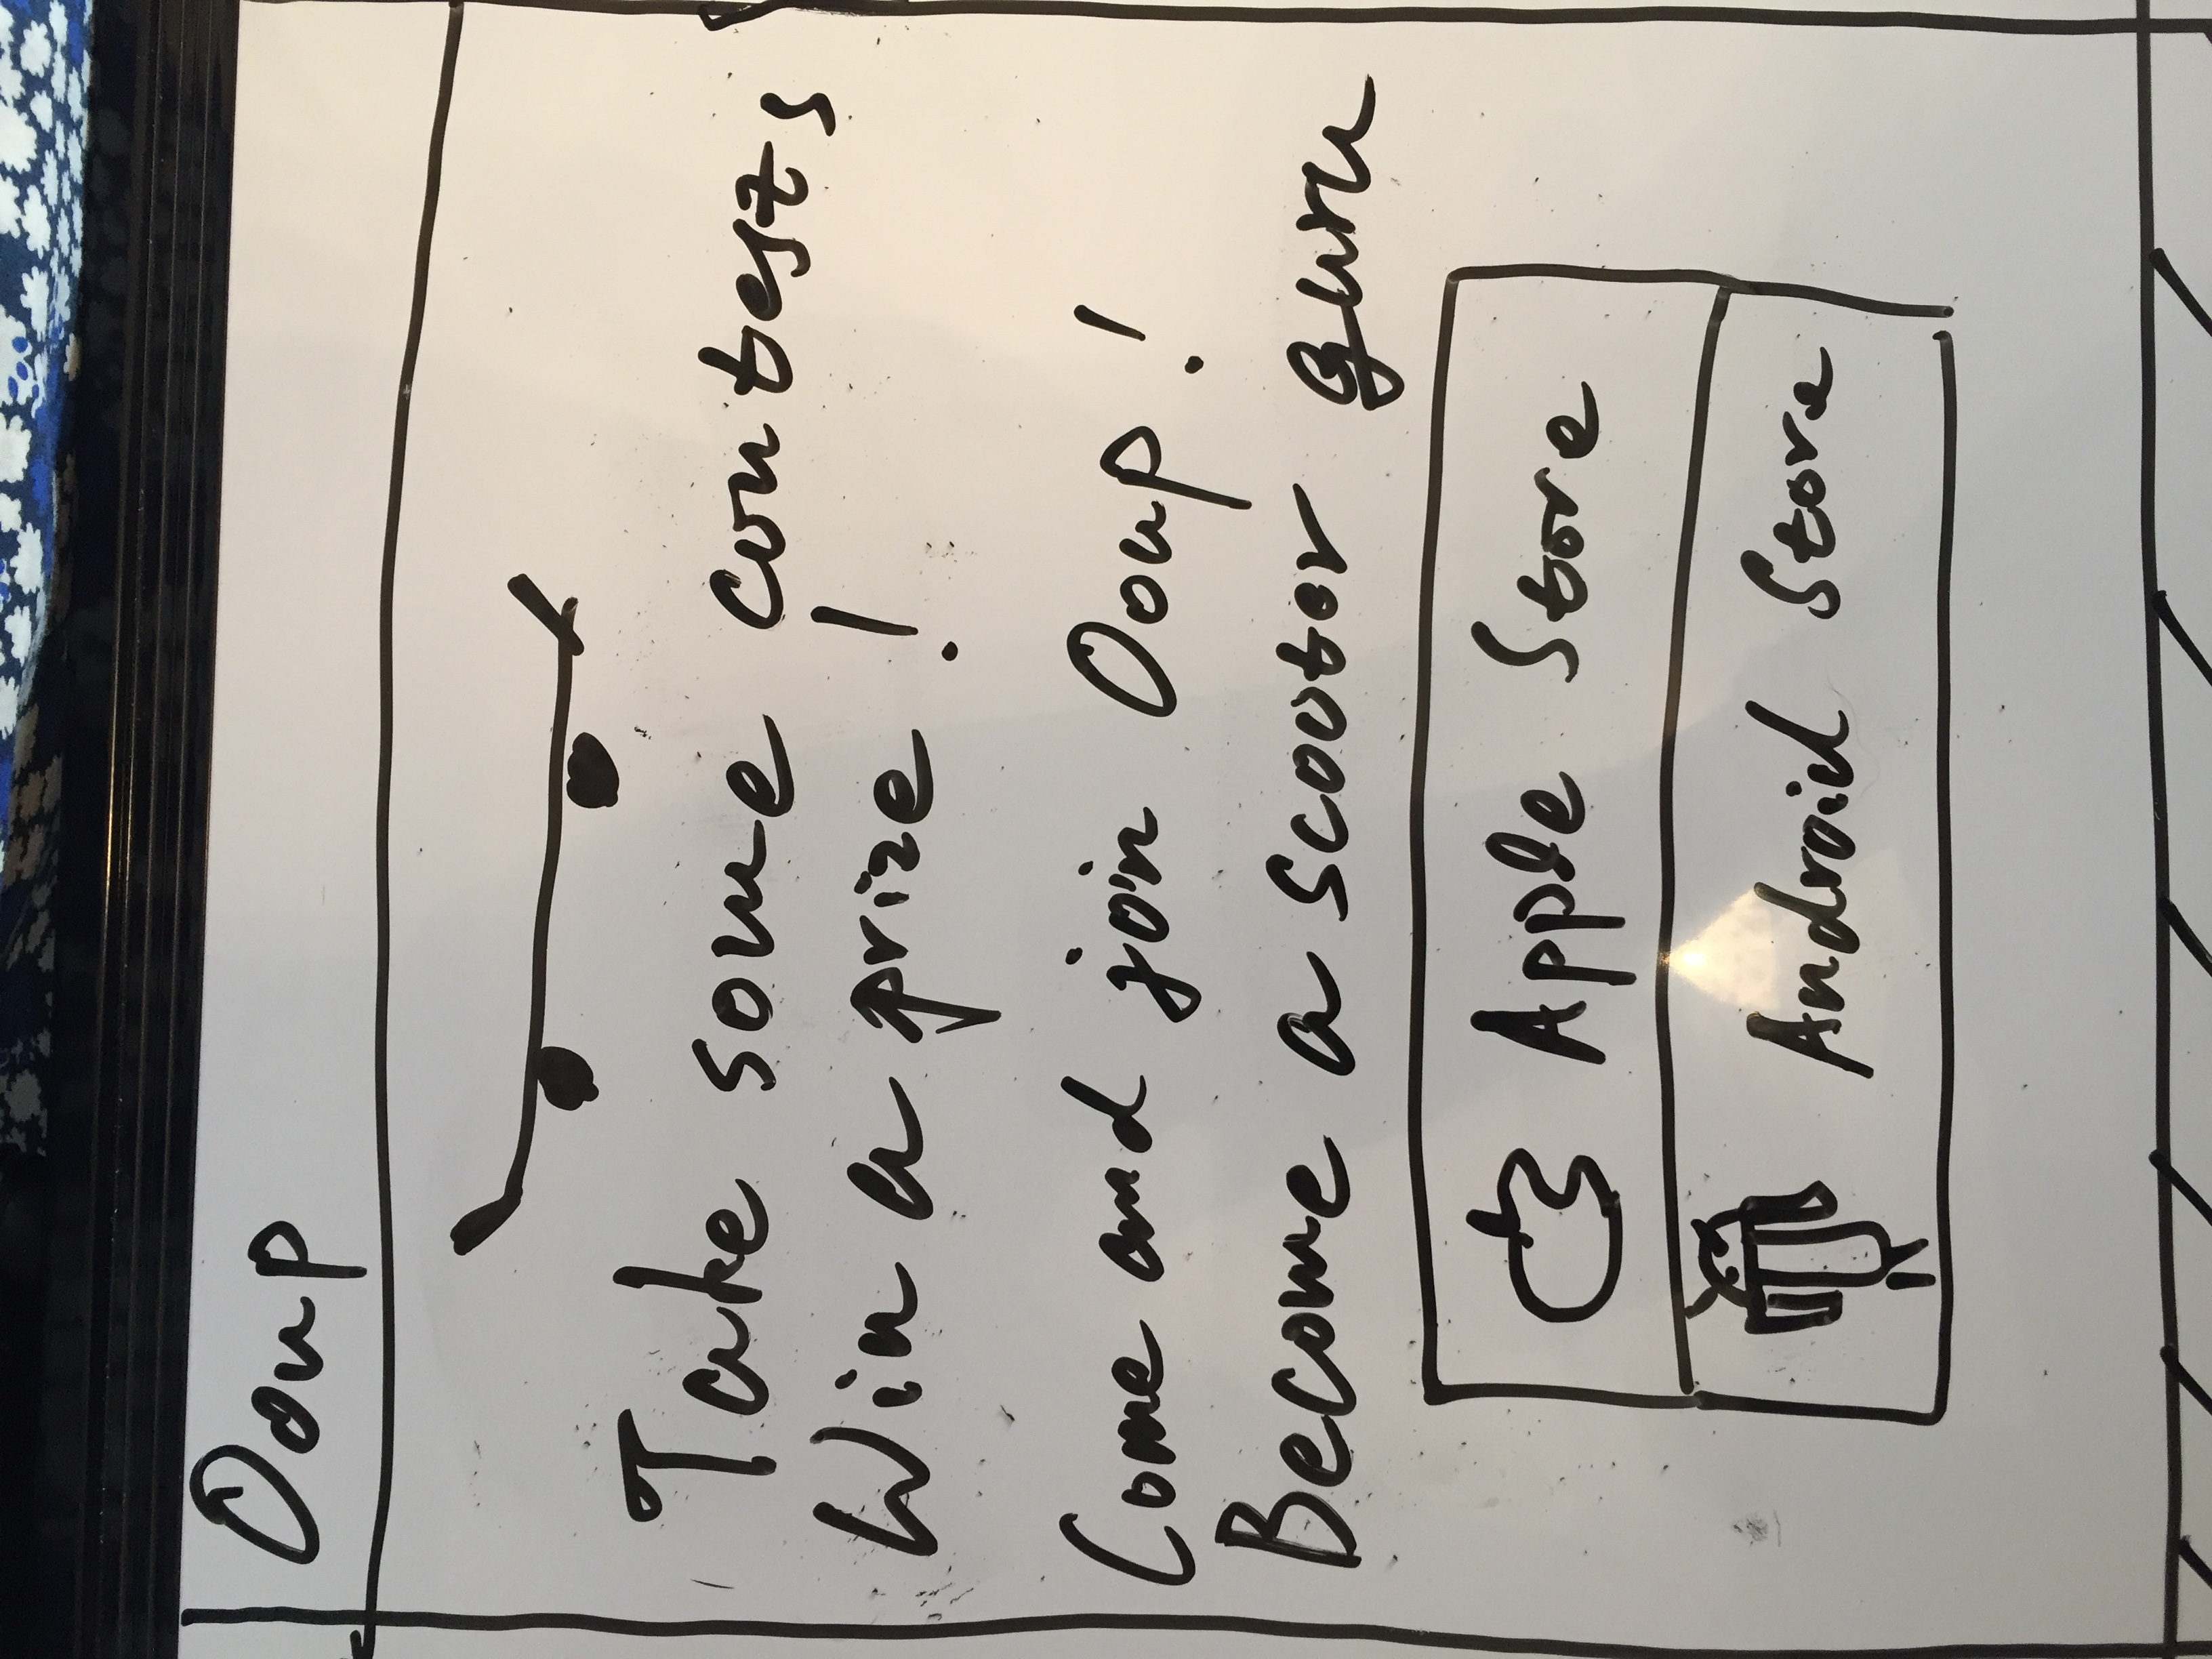 Ooup
Take some contest,
Win a prize!
Come and join Ooup!
Become a scooter guru
Apple Store
Android Store